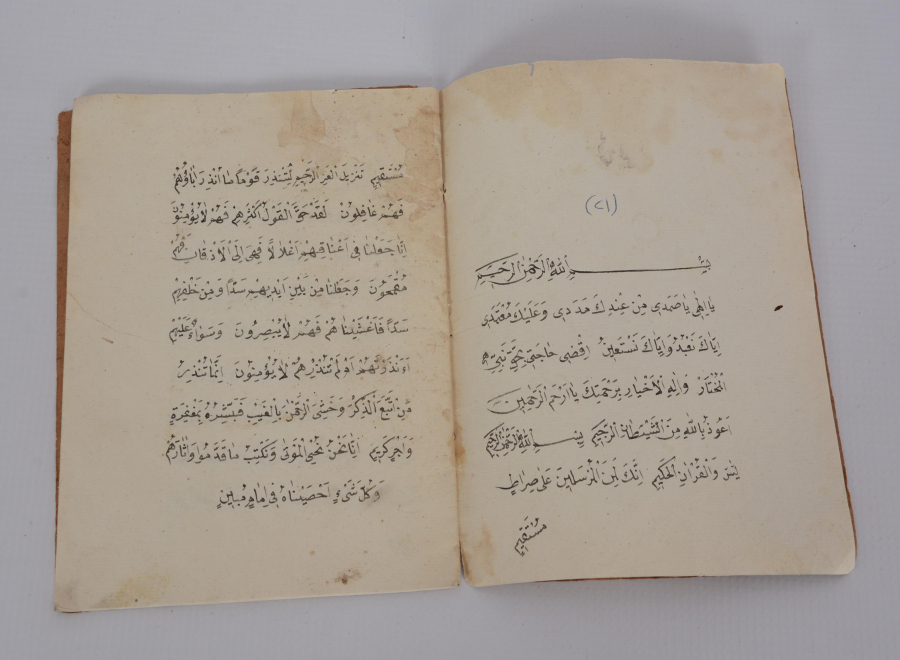 (٢١)
بسم الله الرحمن الرحيم
يا الهى يا صمدى من عندك مددى وعليك معتمدى
اياك نعبد واياك نستعين اقضى حاجتى بحق نبيهم
المختار واله الاخيار برحمتك يا ارحم الراحمين
اعوذ بالله من الشيطان الرجيم بسم الله الرحمن الرحيم
يس والقران الحكيم انك لمن المرسلين على صراط
مستقيم
مستقيم تنزيل العزيز الرحيم لتنذر قوما ما انذر اباؤهم
فهم غافلون لقد حق القول اكثرهم فهم لا يؤمنون
انا جعلنا فى اعناقهم اغلالا فهى الى الاذقان فهم
مقمحون وجعلنا من بين ايديهم سدا ومن خلفهم
سدا فاغشيناهم فهم لا يبصرون وسواء عليهم
ءانذرتهم ام لم تنذرهم لا يؤمنون انما تنذر
من اتبع الذكر وخشى الرحمن بالغيب فبشره بمغفرة
واجر كريم انا نحن نحيى الموتى ونكتب ما قدموا واثارهم
وكل شىء احصيناه فى امام مبين